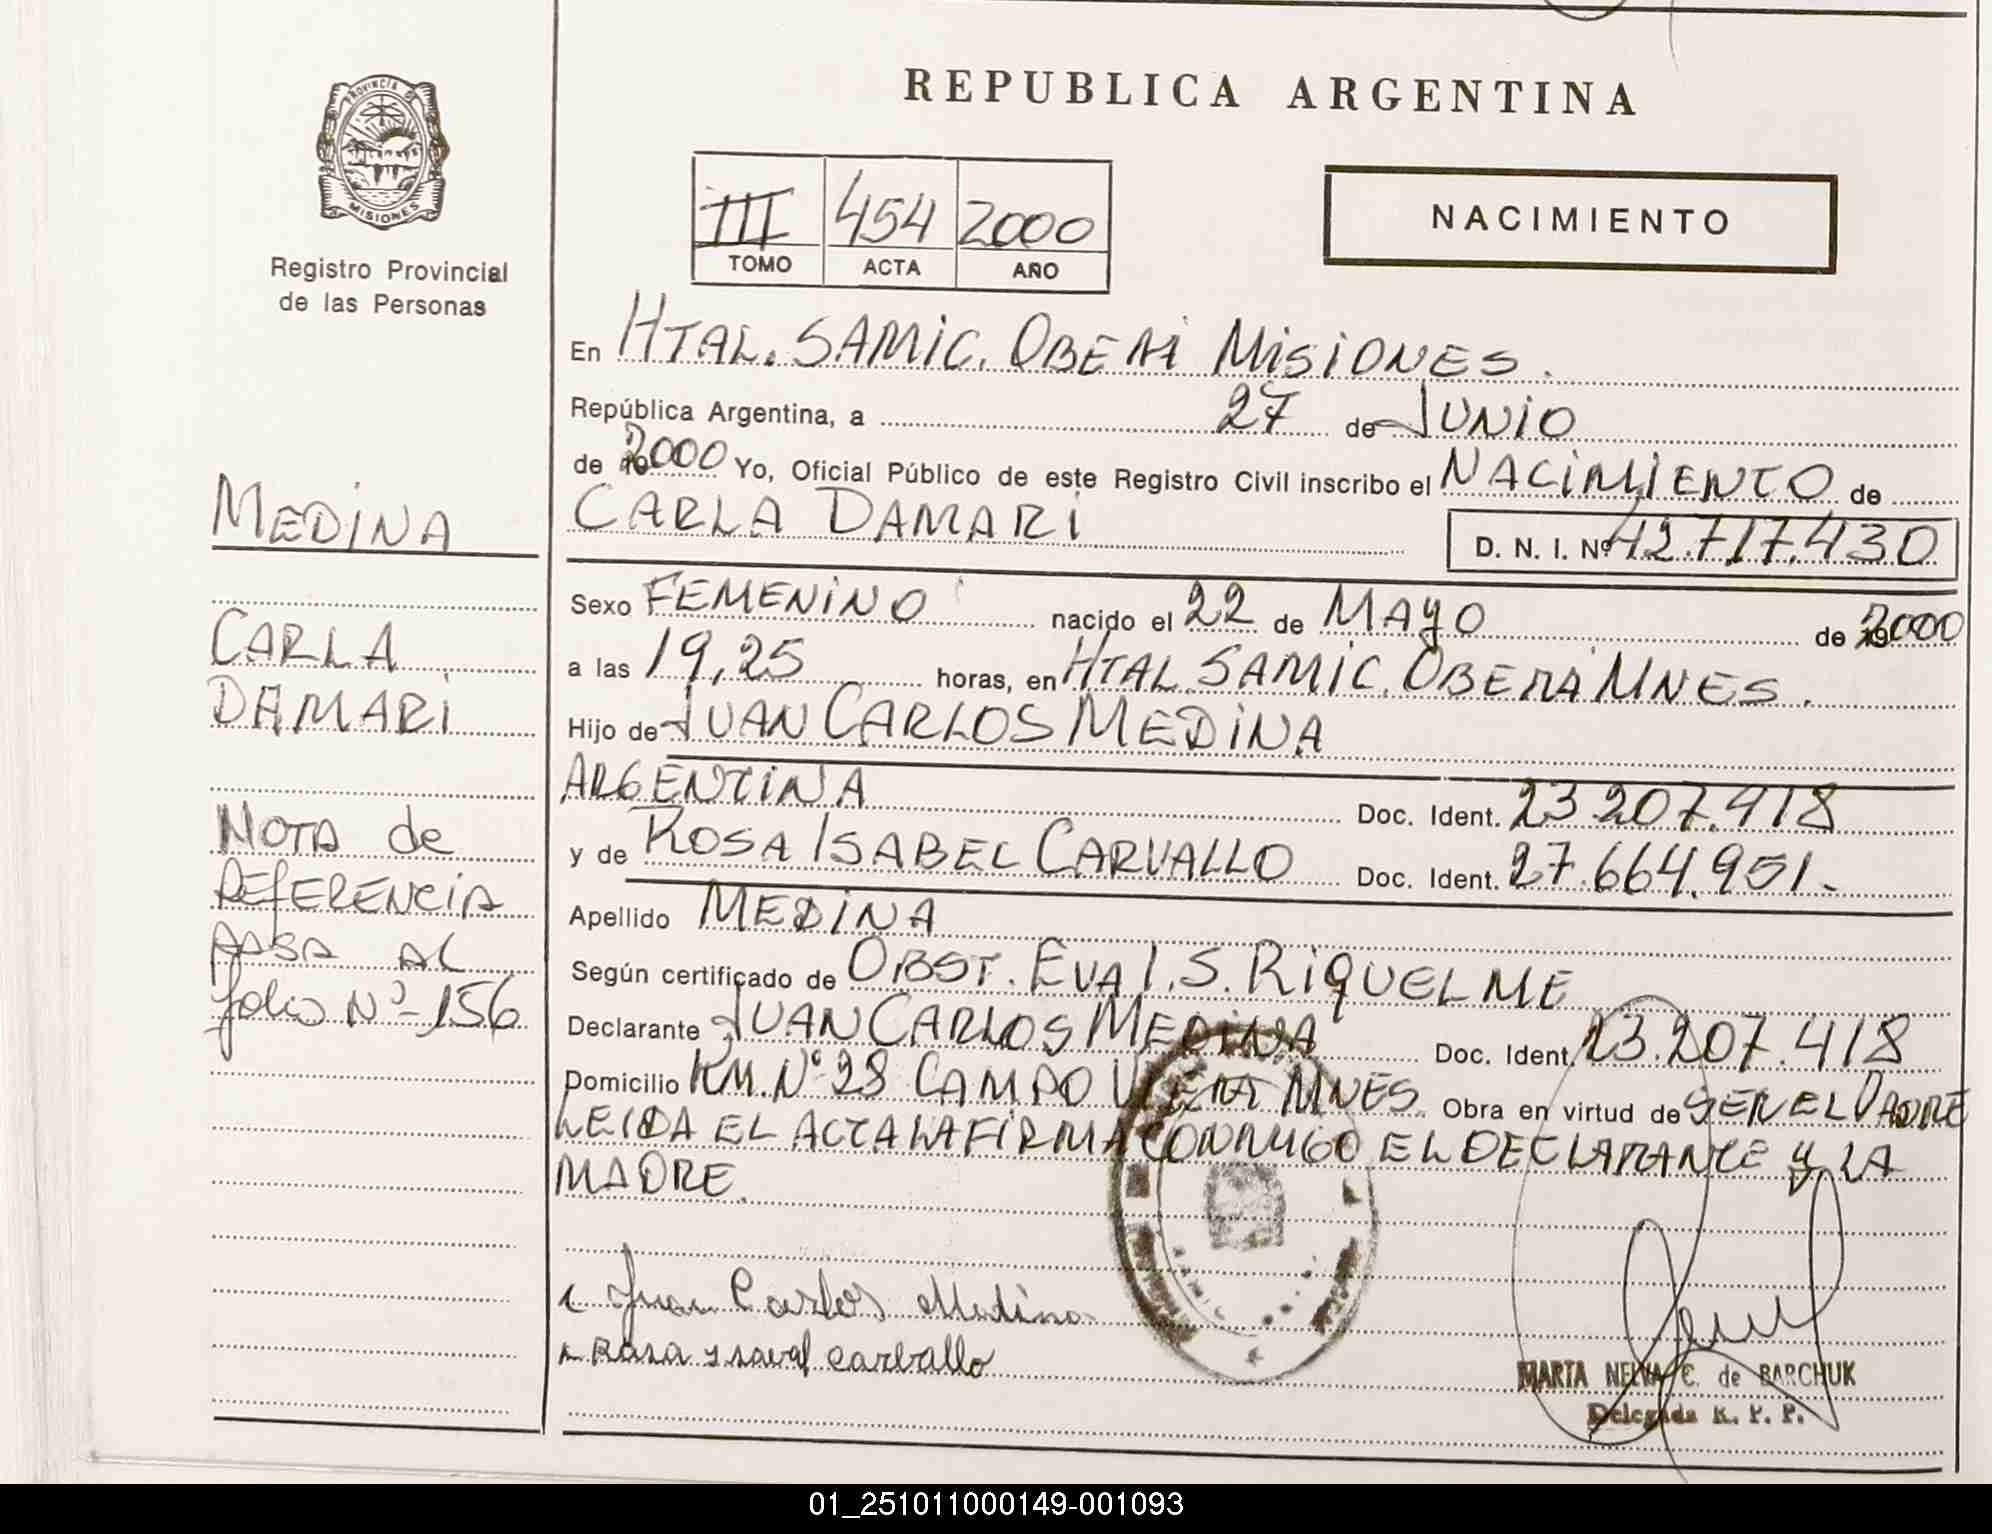 REPUBLICA ARGENTINA
PROVINCIA DE
MISIONES
Registro Provincial
de las Personas
III 454 2000
TOMO ACTA AÑO
NACIMIENTO
En HTAL. SAMIC. OBERÁ MISIONES.
República Argentina, a 27 de JUNIO
de 2000 Yo, Oficial Público de este Registro Civil inscribo el NACIMIENTO de
CARLA DAMARI
D. N. I. Nº 42.717.430
Sexo FEMENINO nacido el 22 de MAYO de 2000
a las 19,25 horas, en HTAL. SAMIC. OBERÁ MNES.
Hijo de JUAN CARLOS MEDINA
ARGENTINA Doc. Ident. 23.207.918
y de ROSA ISABEL CARVALLO Doc. Ident. 27.664.951.-
Apellido MEDINA
Según certificado de OBST. EVA I. S. RIQUELME
Declarante JUAN CARLOS MEDINA Doc. Ident. 23.207.418
Domicilio KM. Nº 28 CAMPO VIERA MNES. Obra en virtud de SER EL PADRE
LEIDA EL ACTA LA FIRMA CONMIGO EL DECLARANTE Y LA
MADRE.
Juan Carlos Medina
Rosa ysavel carballo
MARTA NELVA C. de BARCHUK
Delegada R. P. P.
MEDINA
CARLA
DAMARI
NOTA de
REFERENCIA
PASA AL
folio Nº-156
01_251011000149-001093